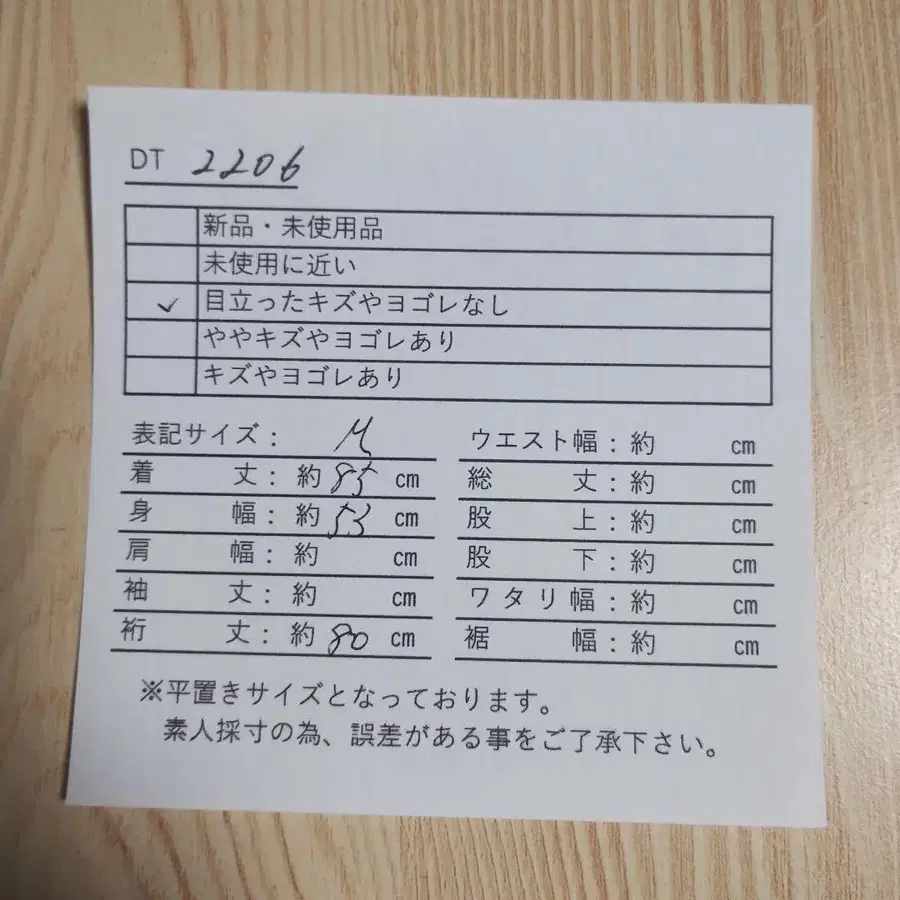 DT 2206
新品・未使用品
未使用に近い
✓ 目立ったキズやヨゴレなし
ややキズやヨゴレあり
キズやヨゴレあり
表記サイズ: M
着 丈: 約 85 cm
身 幅: 約 53 cm
肩 幅: 約 cm
袖 丈: 約 cm
裄 丈: 約 80 cm
ウエスト幅: 約 cm
総 丈: 約 cm
股 上: 約 cm
股 下: 約 cm
ワタリ幅: 約 cm
裾 幅: 約 cm
※平置きサイズとなっております。
素人採寸の為、誤差がある事をご了承下さい。